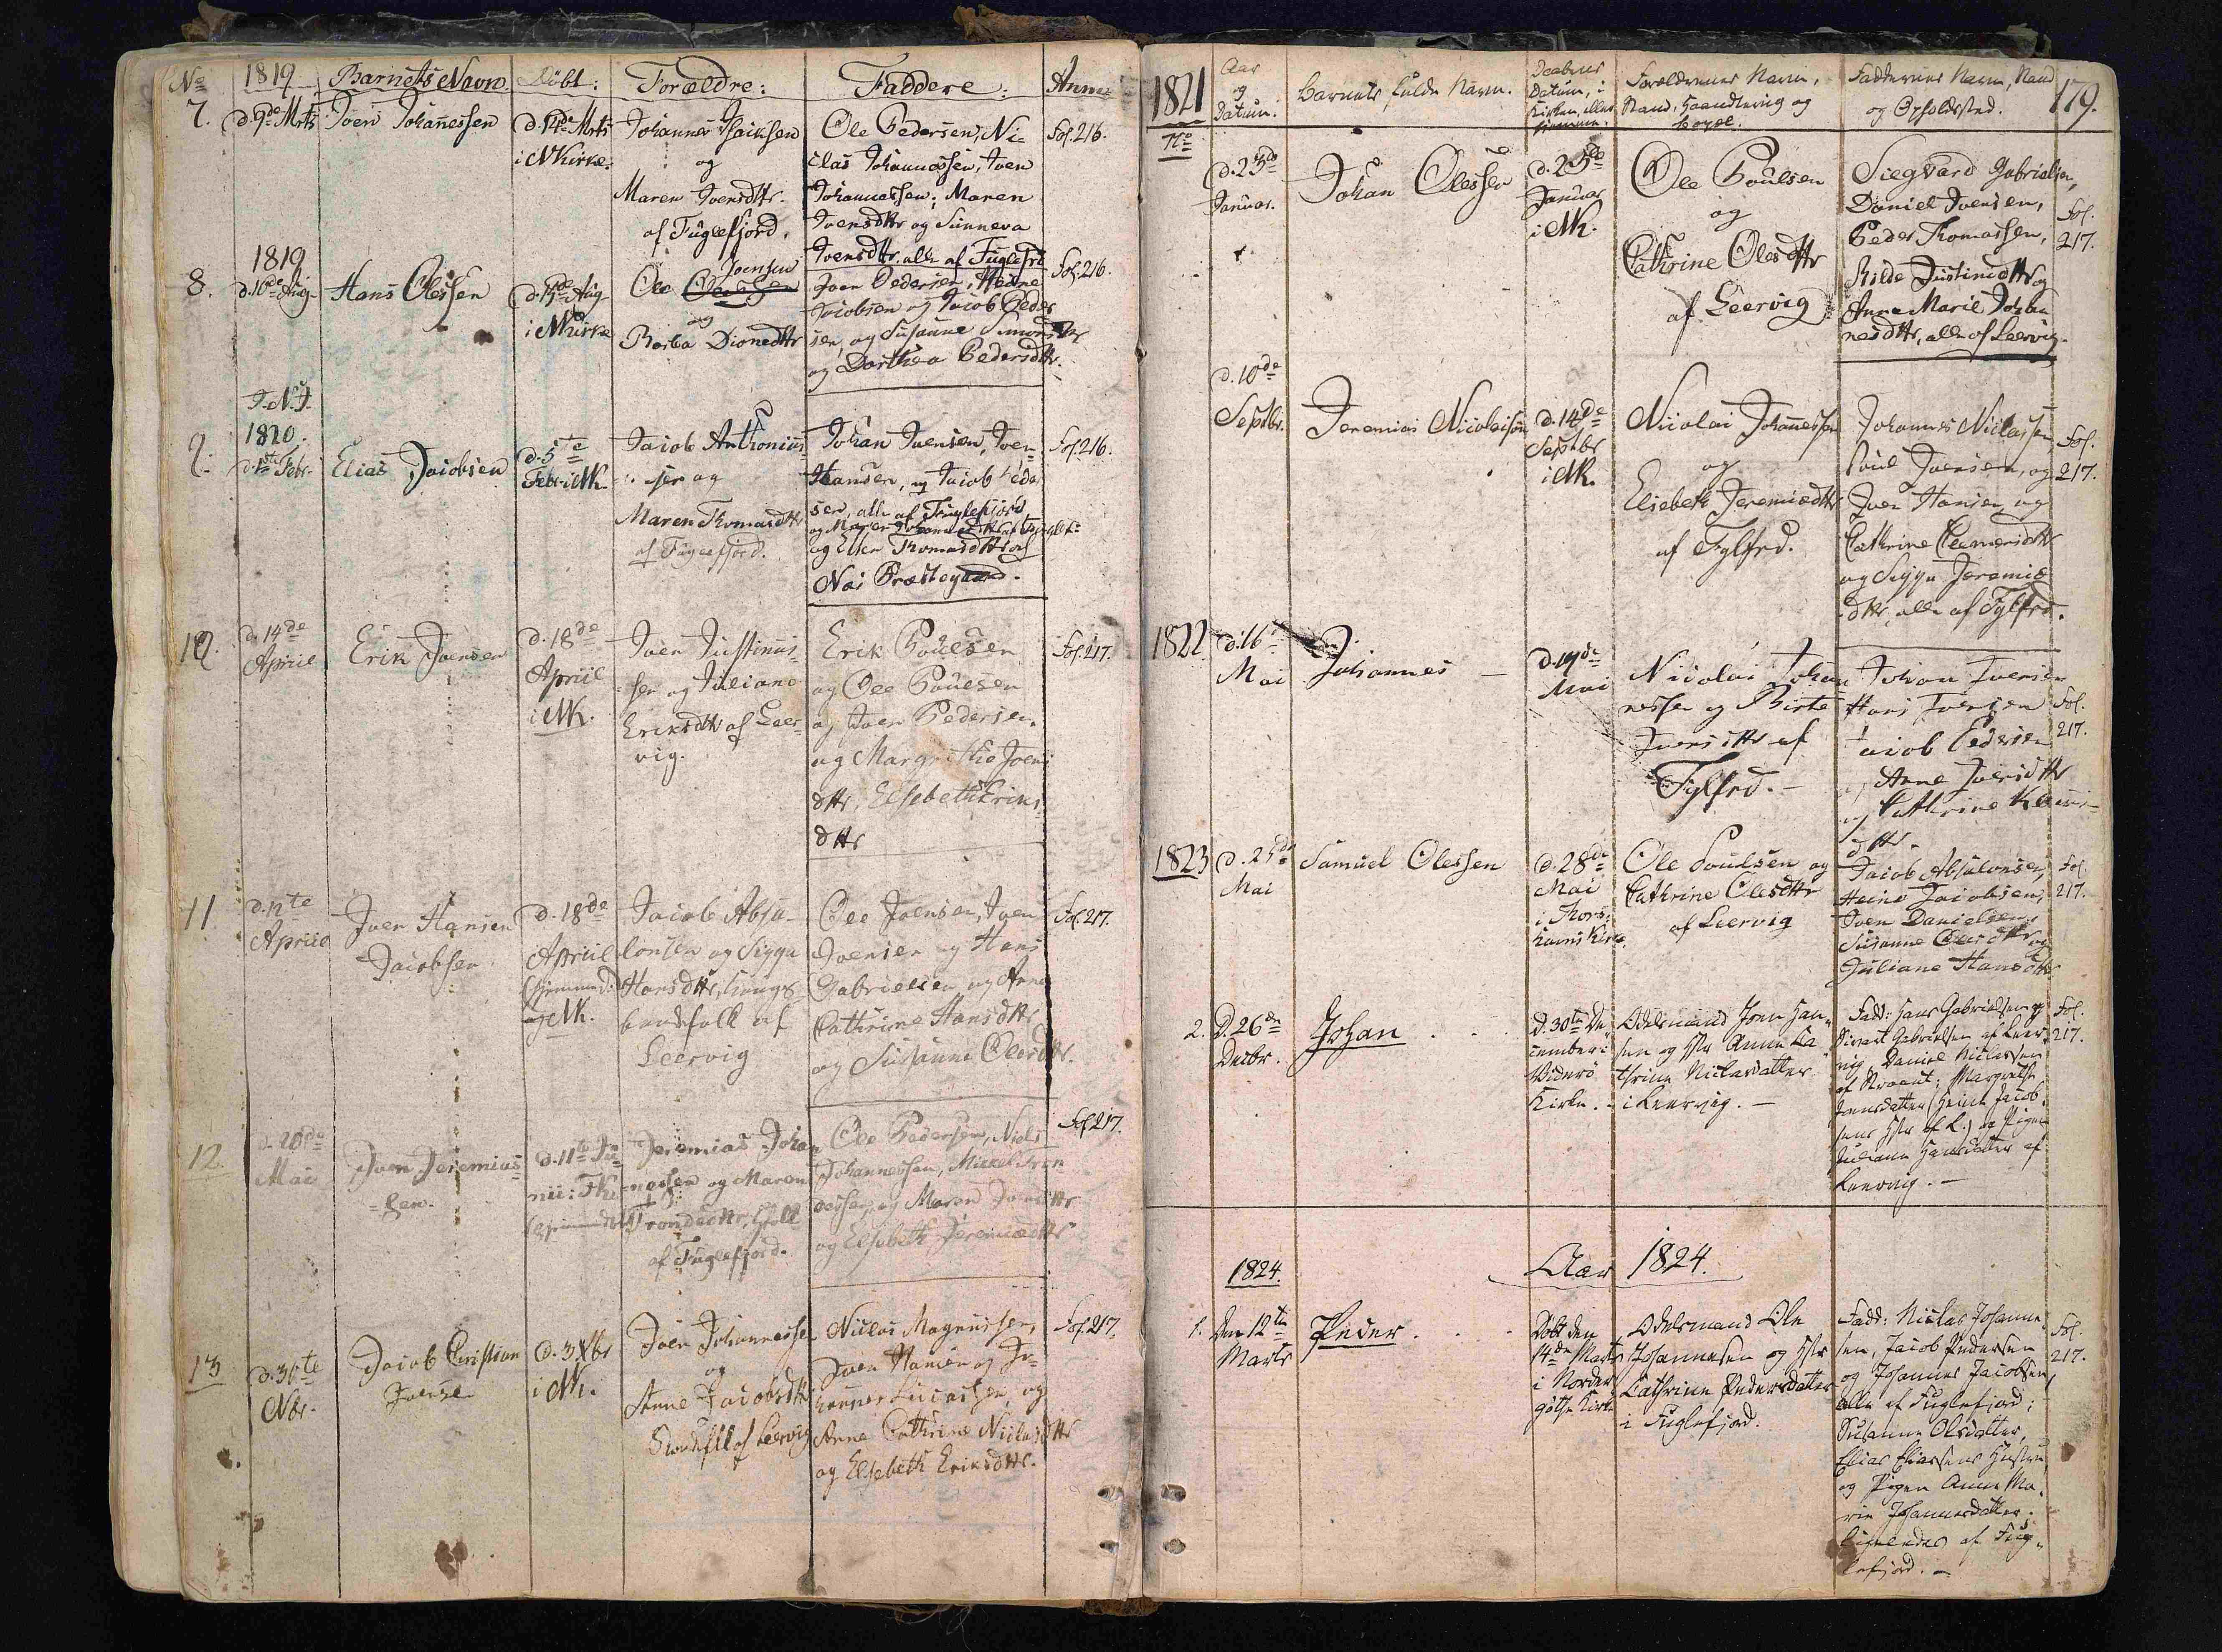 No 1819 Barnets Navn. Döbt: Forældre: Faddere: Anm:
7.
d. 9de Mrts
Joen Johanessen
d. 14de Mrts
i NKirke.
Johannes Isaiksen
og
Maren Joensdttr.
af Fuglefjord.
Ole Pedersen, Ni-
clas Johannessen, Joen
Johannessen; Maren
Joensdttr og Sunneva
Joensdttr. alle af Fuglefrd
Fol. 216.
8.
1819
d. 10de Aug.
Hans Olessen
d. 15de Aug
i NKirke
Joensen
Ole
og
Barba Dionedttr
Joen Pedersen, Heine
Jacobsen og Jacob Peder
sen, og Susanne Simonsdttr
og Dorthea Pedersdttr.
Fol. 216.
J. N. J.
9.
1820.
d. 1ste Febr.
Elias Jacobsen
d. 5te
Febr. i NK.
Jacob Anthonius
sen og
Maren Thomasdttr
af Fuglefjord.
Johan Joensen, Joen
Hansen, og Jacob Peder
sen, alle af Fuglefjord
og Ellen Thomasdttr af
Næs Præstegaard.
Fol. 216.
10.
d. 14de
Apriil
Erik Joensen
d. 18de
Apriil
i NK.
Joen Justinus-
sen og Juliane
Eriksdttr af Leer-
vig.
Erik Poulsen
og Ole Poulsen
og Joen Pedersen.
og Margrethe Joens
dttr, Elsebeth Eriks
dttr
Fol. 217.
11.
d. 12te
Apriil
Joen Hansen
Jacobsen
d. 18de
Apriil
(hjemmed:)
og NK.
Jacob Absa-
lonsen og Sigga
Hansdttr, Kongs-
bondefolk af
Leervig
Ole Joensen, Joen
Joensen og Hans
Gabrielsen og Anne
Cathrine Hansdttr
og Susanne Olesdttr.
Fol. 217.
12.
d. 20de
Mai
Joen Jeremias
=sen.
d. 11te Ju-
nii i
Jeremias Johan
nessen og Maren
Trondesdttr,
af Fuglefjord.
Ole Pedersen, Niels
Johannessen, Mikkel Tron
dessen, og Maren Joensdttr
og Elsebeth Jeremiædttr
Fol 217.
13
d. 30te
Nbr.
Jacob Christian
Joensen
d. 3 Xbr
i NK.
Joen Johannessen
og
Anne Jacobsdttr
af Leervig
Niclas Magnussen,
Joen Hansen og Jo-
hannes Lucassen, og
Anne Cathrine Niclasdttr
og Elsebeth Eriksdttr.
Fol. 217.
1821
No
Aar
og
Datum.
Barnets fulde Navn.
Daabens
Datum, i
Kirken, eller
hjemme.
Forældrenes Navn,
Stand, Haandtering og
Bopæl.
Faddernes Navn, Stand
og Opholdssted.
179.
d. 23de
Januar.
Johan Olessen
d. 25de
Januar
i NK.
Ole Poulsen
og
Cathrine Olesdttr
af Leervig
Siegvard Gabrielsen,
Daniel Joensen,
Peder Thomassen,
Rilde Justinidttr og
Anne Marie Johan
nesdttr, alle af Leervig.
Fol.
217.
d. 10de
Septbr.
Jeremias Nicolaisen
d. 14de
Septbr
i NK.
Nicolai Johanessen
og
Elsebeth Jeremiædttr
af Fglfrd.
Johannes Niclassen,
Poul Joensen, og
Joen Hansen og
Cathrine Clemensdttr
og Sigga Jeremiæ
dttr, alle af Fglfrd.
Fol.
217.
1822
d. 16de
Mai
Johannes –
d. 19de
Mai
Nicolai Johan
nessen og Birte
Joensdttr af
Fglfrd. –
Johan Joensen
Hans Joensen
Jacob Pedersen
og Anne Joensdttr
og Cathrine Klemens-
dttr.
Fol.
217.
1823
d. 25de
Mai
Samuel Olessen
d. 28de
Mai
i Thors-
havns Kirke.
Ole Poulsen og
Cathrine Olesdttr
af Leervig
Jacob Absalonsen,
Heine Jacobsen,
Joen Danielsen,
Susanne Olesdttr og
Juliane Hansdttr
Fol.
217.
2.
D. 26de
Decbr.
Johan
d. 30te De-
cember i
Viderö
Kirke.
Odelsmand Joen Han-
sen og Hstr Anne Ca-
thrine Niclasdatter
i Leervig. –
Fadd: Hans Gabrielsen og
Sivert Gabrielsen af Leer-
vig, Daniel Niclassen
af ; Margrethe
Joensdatter (Heine Jacob-
sens Hstr af L.) og Pigen
Juliane Hansdatter af
Leervig. –
Fol.
217.
1824. Aar 1824.
1.
Den 12te
Marts
Peder.
Döbt den
14de Marts
i Norder
göthe Kirke
Odelsmand Ole
Johannesen og Hstr
Cathrine Pedersdatter
i Fuglefjord.
Fadd: Niclas Johanne-
sen, Jacob Pedersen
og Johannes Jacobsen,
alle af Fuglefjord;
Susanne Olesdatter,
Elias Eliassens Hustru,
og Pigen Anne Ma-
rie Johannesdatter,
ligeledes af Fug-
lefjord. –
Fol.
217.